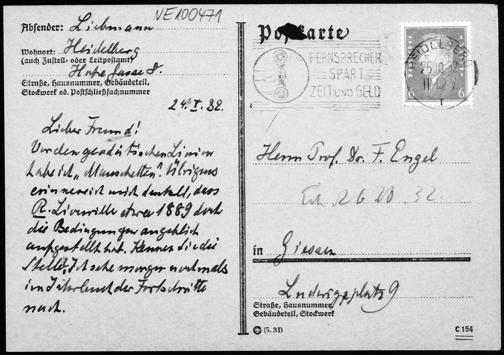 NE100471
Absender: Liebmann
Wohnort: Heidelberg
(auch Zustell- oder Leitpostamt)
Straße, Hausnummer, Gebäudeteil,
Stockwerk od. Postschließfachnummer
Postkarte
FERNSPRECHER
SPART
ZEIT UND GELD
HEIDELBERG
6 6
32.
Lieber Freund!
Vor den geodätischen Linien
habe ich „Manschetten". Übrigens
erinnere ich mich dunkel, dass
R. Liouville etwa 1889 doch
die Bedingungen angeblich
aufgestellt hat. Kennen Sie die
Stelle? Ich sehe morgen nochmals
im Jahrbuch der Fortschritte
nach.
Herrn Prof. Dr. F. Engel
26 32.
in Giessen
Ludwigsplatz 9
Straße, Hausnummer,
Gebäudeteil, Stockwerk
(5.31)
C 154